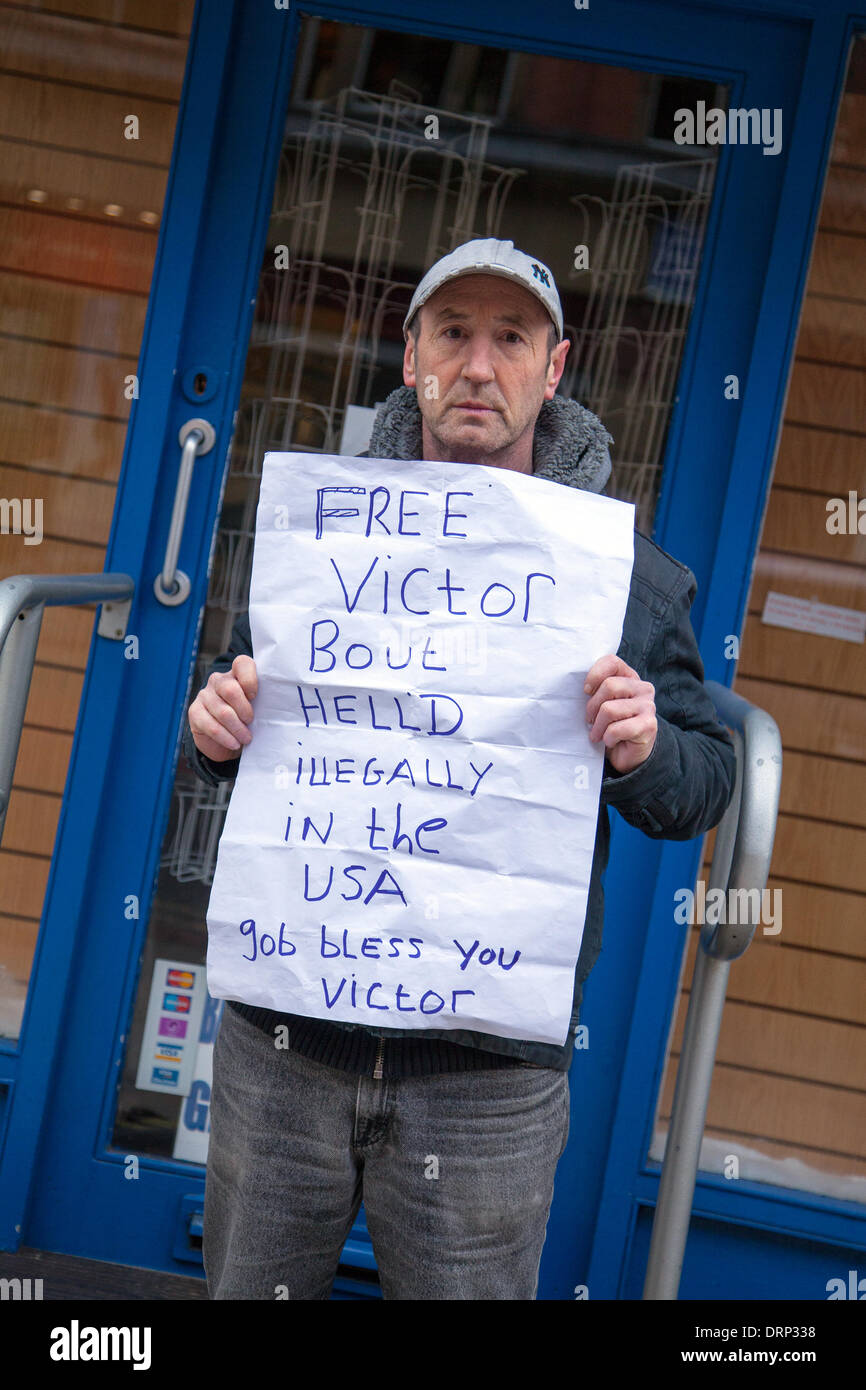 FREE
Victor
Bout
HELL'D
iLLEGALLY
iN the
USA
gob bless you
Victor
NY
VISA
alamy
Image ID: DRP338
www.alamy.com